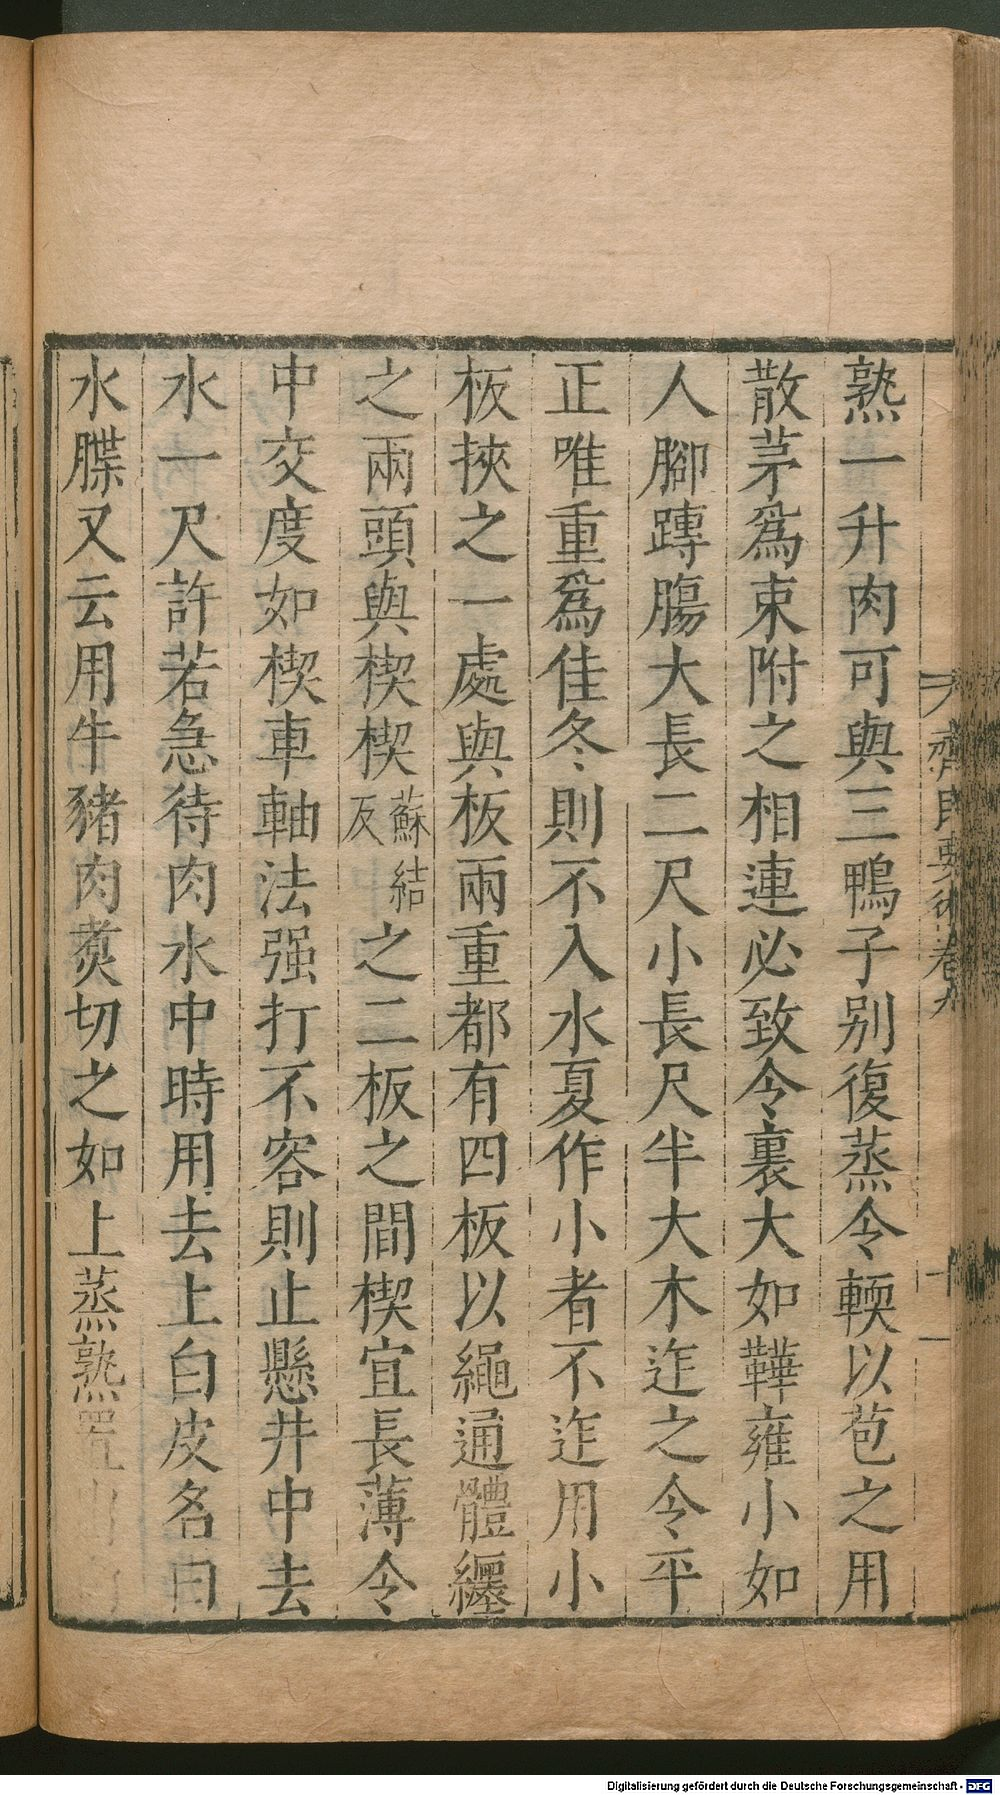 熟一升肉可與三鴨子别復蒸令輭以苞之用
散茅爲束附之相連必致令裏大如鞾雍小如
人腳蹲腸大長二尺小長尺半大木迮之令平
正唯重爲佳冬則不入水夏作小者不迮用小
板挾之一處與板兩重都有四板以繩通體纏
之兩頭與楔楔蘇結反之二板之間楔宜長薄令
中交度如楔車軸法强打不容則止懸井中去
水一尺許若急待肉水中時用去上白皮名曰
水牒又云用牛豬肉煑切之如上蒸熟置
齊民要術卷九
十一
Digitalisierung gefördert durch die Deutsche Forschungsgemeinschaft - DFG